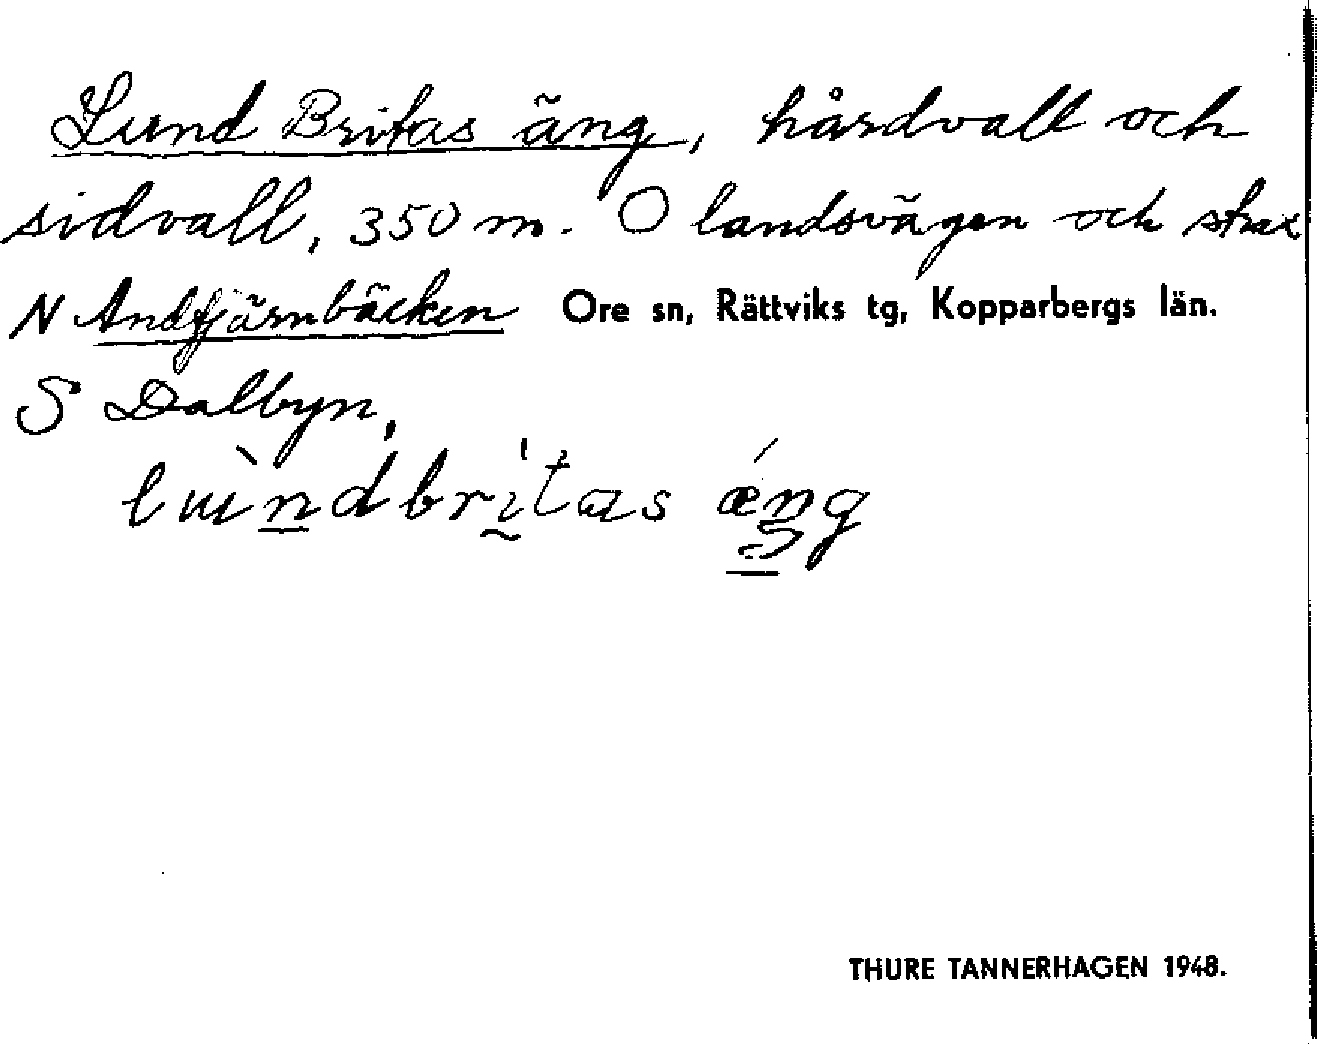 Lund Britas äng, hårdvall och
sidvall, 350 m. O landsvägen och strax
N Andtjärnbäcken Ore sn, Rättviks tg, Kopparbergs län.
S Dalbyn,
THURE TANNERHAGEN 1948.